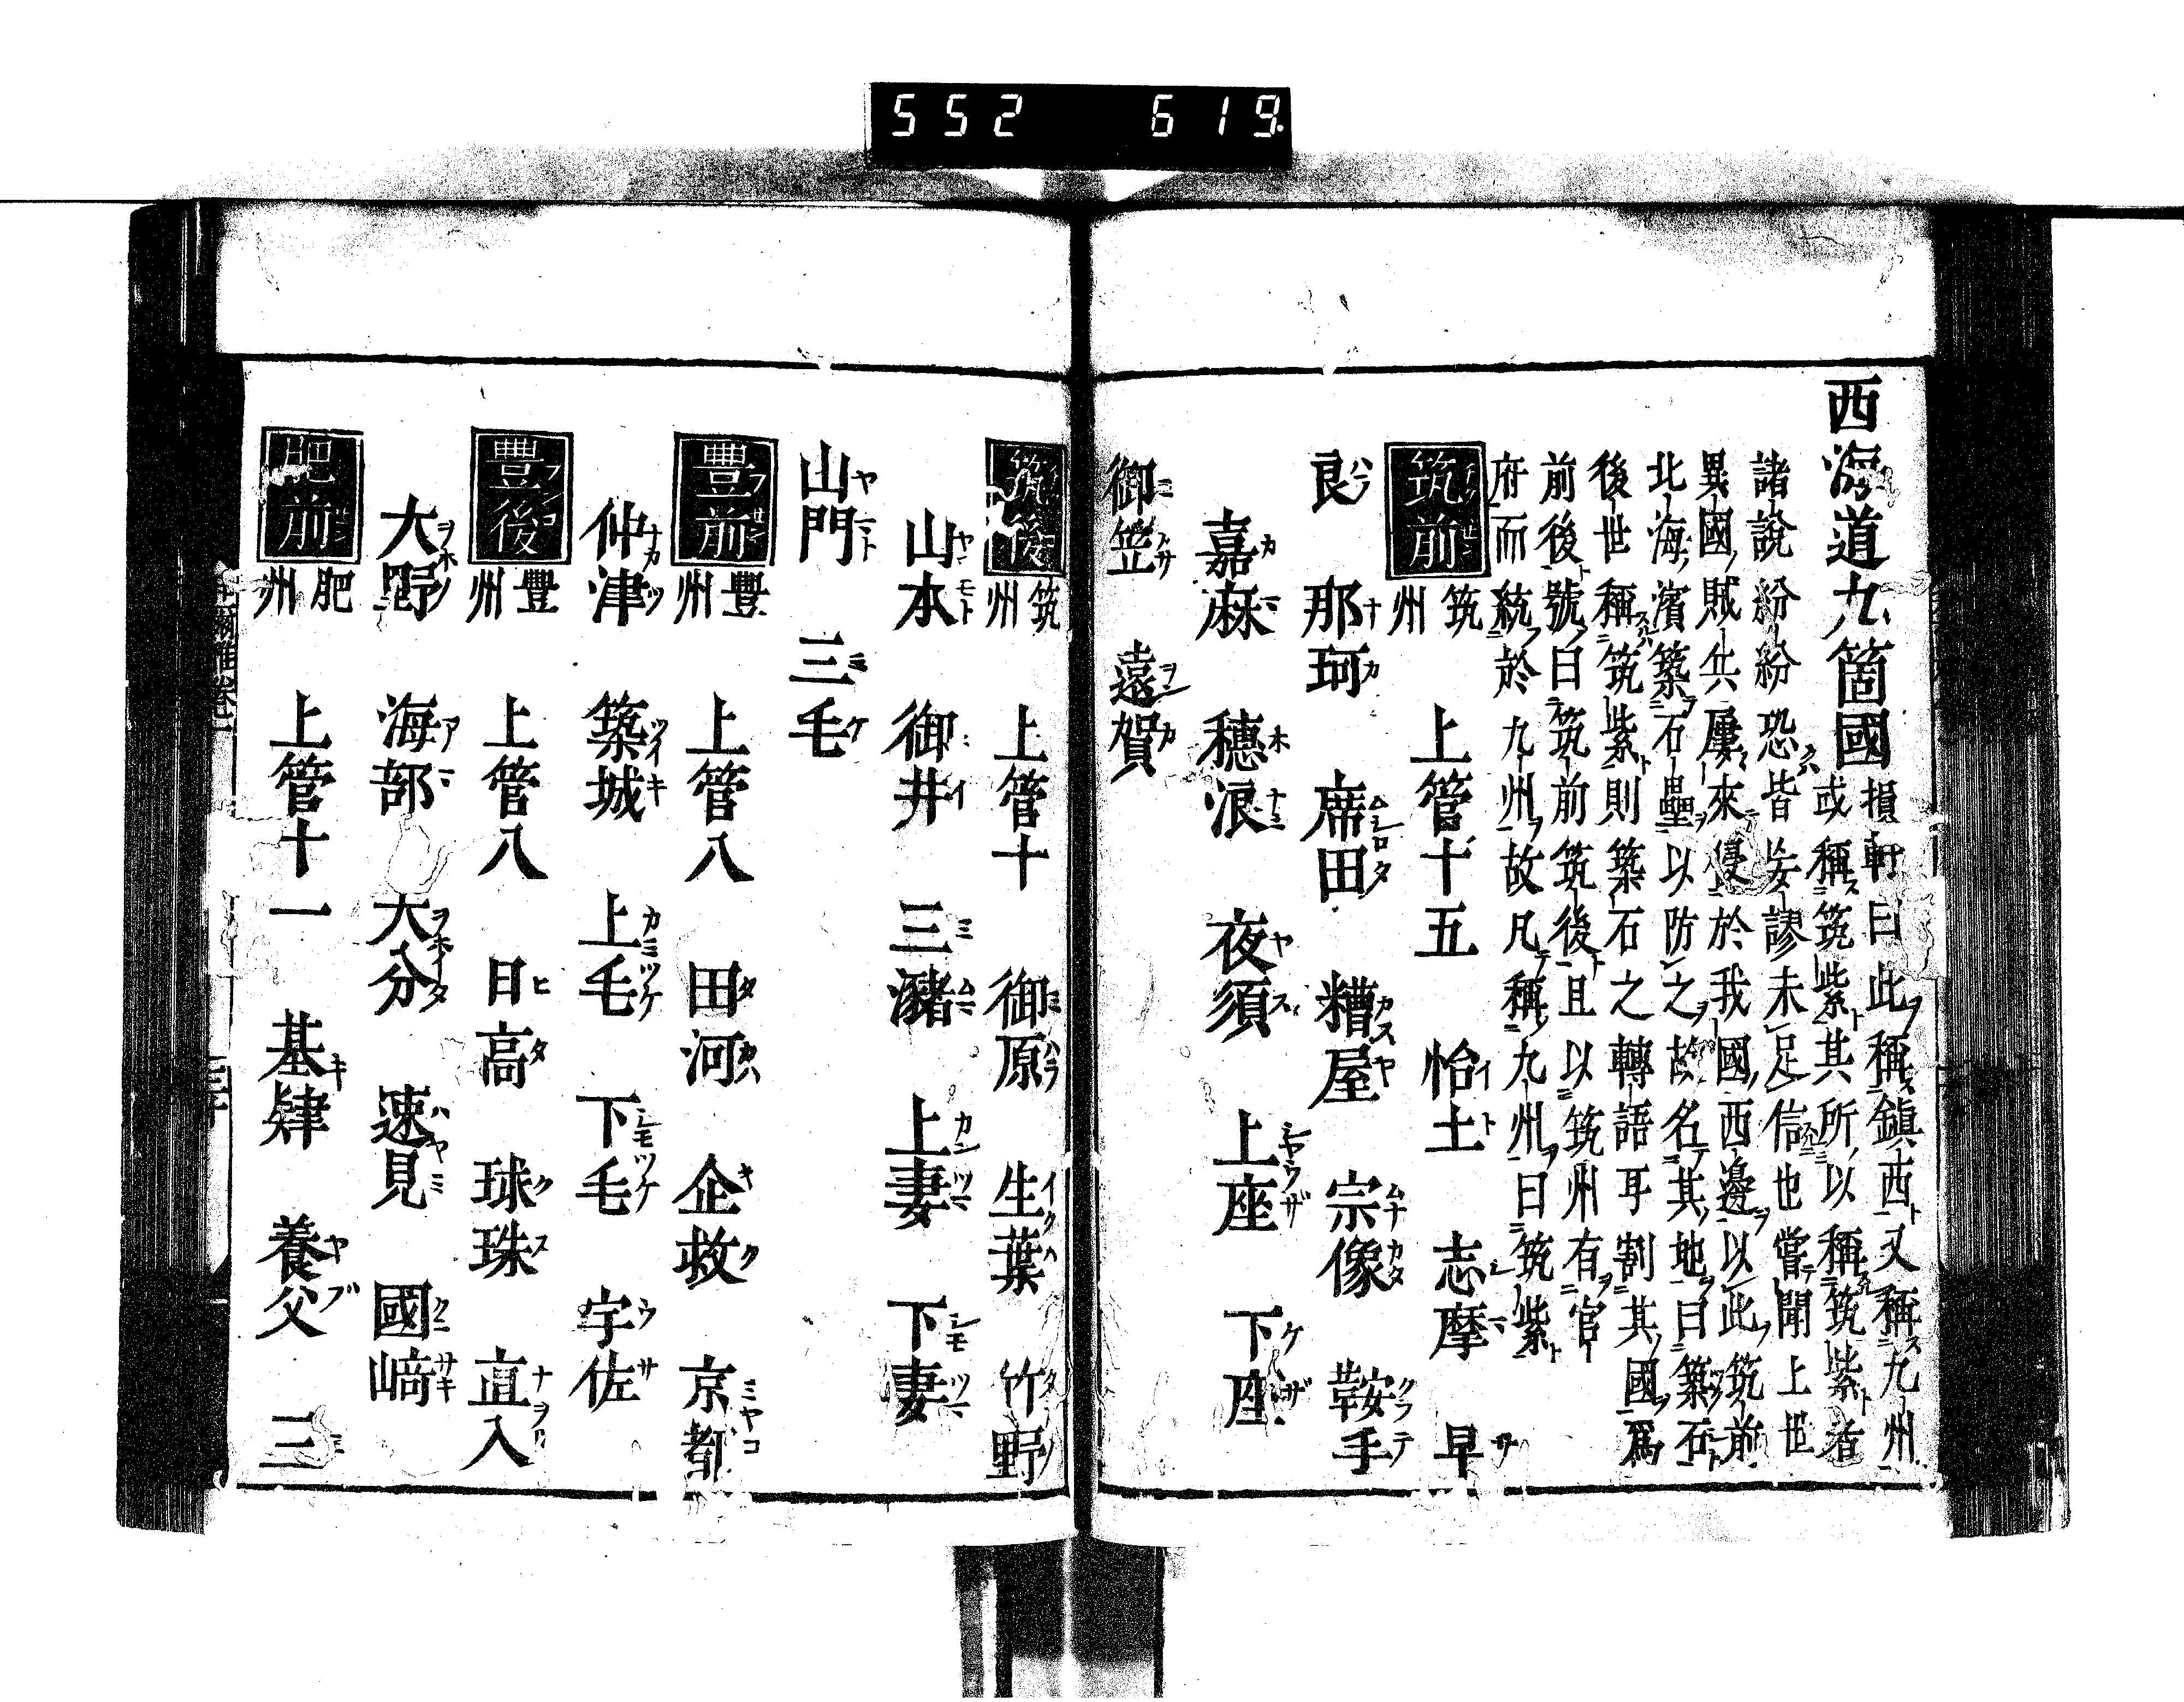 552 619.
西海道九箇國 損軒曰此稱鎮西又稱九州
或稱筑紫其所以稱筑紫者
諸說紛紛恐皆妄謬未足信也嘗聞上世
異國賊兵屢來侵於我國西邊以此筑前
北海濱築石壘以防之故名其地曰築石
後世稱筑紫則築石之轉語耳割其國爲
前後號曰筑前筑後且以筑州有官
府而統於九州故凡稱九州曰筑紫
筑前 筑州 上管十五 怡土 志摩 早
良 那珂 席田 糟屋 宗像 鞍手
嘉麻 穗浪 夜須 上座 下座
御笠 遠賀
筑後 筑州 上管十 御原 生葉 竹野
山本 御井 三瀦 上妻 下妻
山門 三毛
豐前 豐州 上管八 田河 企救 京都
仲津 築城 上毛 下毛 宇佐
豐後 豐州 上管八 日高 球珠 直入
大野 海部 大分 速見 國崎
肥前 肥州 上管十一 基肄 養父 三